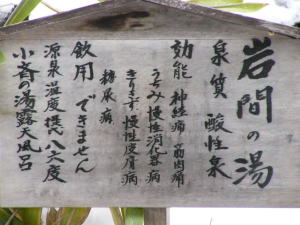 岩間の湯
泉質 酸性泉
効能 神経痛 筋肉痛
うちみ 慢性消化器病
きりきず 慢性皮膚病
糖尿病
飲用 できません
源泉温度 摂氏 八六度
小斉の湯露天風呂